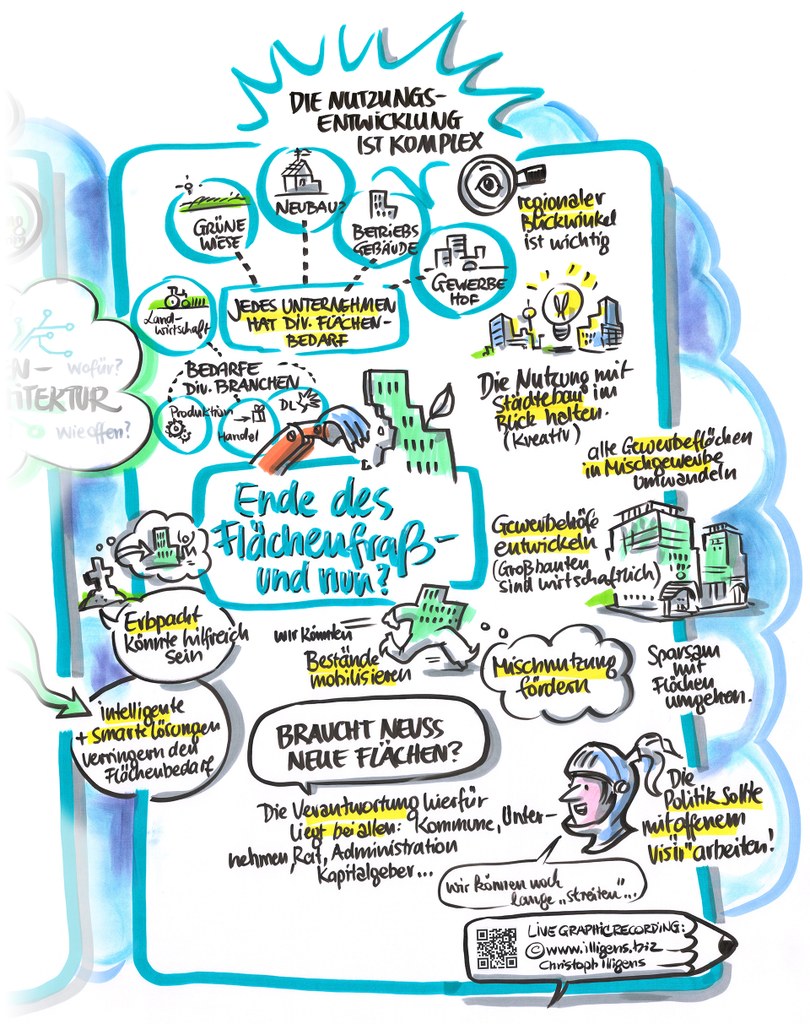 DIE NUTZUNGS-
ENTWICKLUNG
IST KOMPLEX
GRÜNE
WIESE
NEUBAU?
BETRIEBS
GEBÄUDE
GEWERBE
HOF
regionaler
Blickwinkel
ist wichtig
Land-
wirtschaft
JEDES UNTERNEHMEN
HAT DIV. FLÄCHEN-
BEDARF
BEDARFE
DIV. BRANCHEN
Produktion
Handel
DL
Die Nutzung mit
Städtebau im
Blick halten.
(Kreativ)
Wofür?
ITEKTUR
Wie offen?
alle Gewerbeflächen
in Mischgewerbe
umwandeln
Ende des
Flächenfraß-
und nun?
Gewerbehöfe
entwickeln
(Großbauten
sind wirtschaftlich)
Erbpacht
könnte hilfreich
sein
wir könnten
Bestände
mobilisieren
Mischnutzung
fördern
Sparsam
mit
Flächen
umgehen.
intelligente
+ smarte lösungen
verringern den
Flächenbedarf
BRAUCHT NEUSS
NEUE FLÄCHEN?
Die Verantwortung hierfür
liegt bei allen: Kommune, Unter-
nehmen, Rat, Administration
Kapitalgeber...
Die
Politik sollte
mit offenem
"Visir" arbeiten!
wir können noch
lange „streiten"...
LIVE GRAPHIC RECORDING:
© www.illigens.biz
Christoph illigens